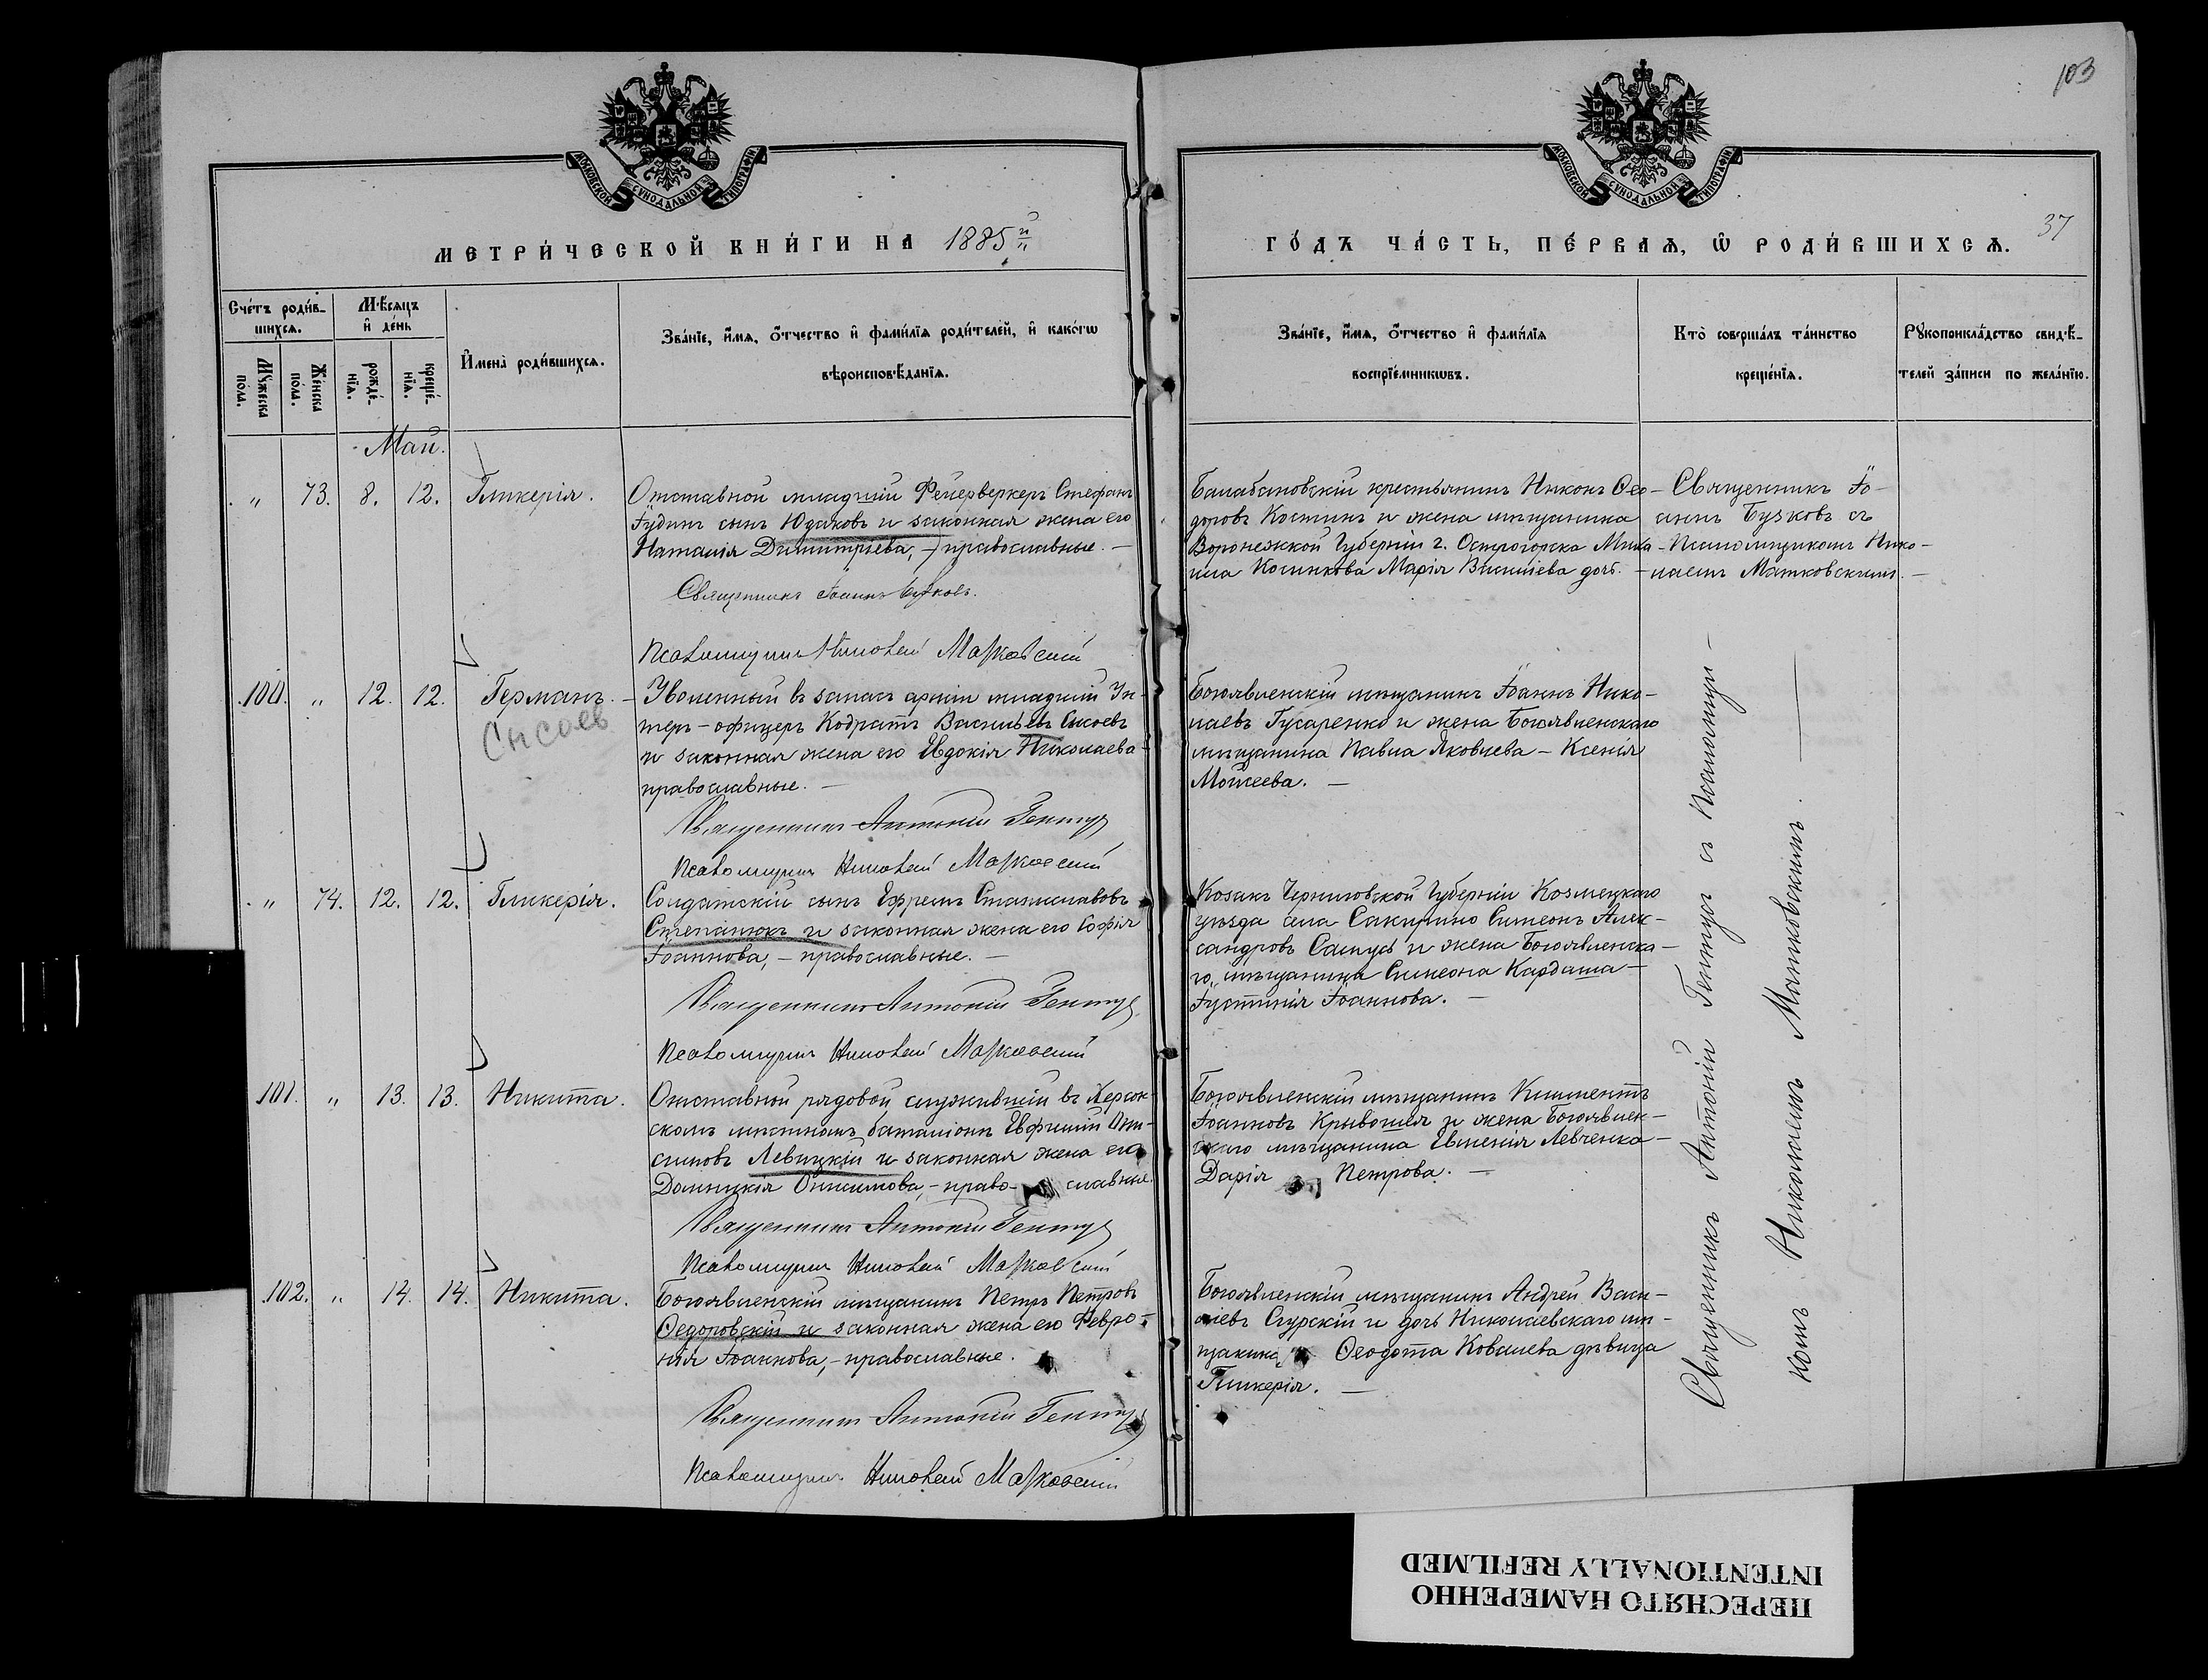 103
МОСКОВСКОЙ СУНОДАЛЬНОЙ ТИПОГРАФІИ
МОСКОВСКОЙ СУНОДАЛЬНОЙ ТИПОГРАФІИ
МЕТРИ́ЧЕСКОЙ КНИ́ГИ НА 1885й
ГО́ДЪ ЧА́СТЬ, ПЕ́РВАЯ, Ѡ РОДИ́ВШИХСЯ.
37
Сче́тъ роди́в-
шихся.
Мѣ́сяцъ
и де́нь
Му́жеска
пола.
Же́нска
по́ла.
рожде́-
нія.
креще́-
нія.
Имена̀ роди́вшихся.
Зва́нїе, и́мя, о́тчество и фами́лїя роди́телей, и како́гѡ
вѣроисповѣ́данїя.
Зва́нїе, и́мя, о́тчество и фами́лїя
воспрїе́мникѡвъ.
Кто̀ соверша́лъ та́инство
креще́нїя.
Рꙋкоприкла́дство свидѣ́-
телей за́писи по жела́нїю.
Май.
" 73. 8. 12. Гликерія.
Отставной младшій Фейерверкеръ Стефанъ
Іудинъ сынъ Юдаковъ и законная жена его
Наталія Димитріева, – православные. –
Священникъ Іоаннъ Бучковъ.
Псаломщикъ Николай Матковскій
Балабановскій крестьянинъ Никонъ Ѳео-
доровъ Костинъ и жена мѣщанина
Воронежской Губерніи г. Острогорска Миха-
ила Косинкова Марія Василіева дочь. –
Священникъ Іо-
аннъ Бучковъ съ
Псаломщикомъ Нико-
лаемъ Матковскимъ. –
100. " 12. 12. Германъ. –
Сысоев
Уволенный въ запасъ арміи младшій Ун-
теръ-офицеръ Кодратъ Васильевъ Сысоевъ
и законная жена его Евдокія Николаева
православные. –
Священникъ Антоній Гентуз
Псаломщикъ Николай Матковскій
Богоявленскій мѣщанинъ Іоаннъ Нико-
лаевъ Гусаренко и жена Богоявленскаго
мѣщанина Павла Яковлева – Ксенія
Мойсеева. –
" 74. 12. 12. Гликерія.
Солдатскій сынъ Ефремъ Станиславовъ
Степанюкъ и законная жена его Софія
Іоаннова, – православные. –
Священникъ Антоній Гентуз
Псаломщикъ Николай Матковскій
Козакъ Черниговской Губерніи
уѣзда села Симеонъ Алек-
сандровъ и жена Богоявленска-
го, мѣщанина Симеона Кардаша –
Іустинія Іоаннова. –
101. " 13. 13. Никита.
Отставной рядовой служившій въ Херсон-
скомъ мѣстномъ баталіонѣ Евфимій Они-
симовъ Левицкій и законная жена его
Домникія Онисимова, – право- славные.
Священникъ Антоній Гентуз
Псаломщикъ Николай Матковскій
Богоявленскій мѣщанинъ Климентъ
Іоанновъ Крывошея и жена Богоявлен-
скаго мѣщанина Евменія Левченка –
Дарія Петрова. –
102. " 14. 14. Никита.
Богоявленскій мѣщанинъ Петръ Петровъ
Ѳедоровскій и законная жена его Февро-
нія Іоаннова, – православные.
Священникъ Антоній Гентуз
Псаломщикъ Николай Матковскій
Богоявленскій мѣщанинъ Андрей Васи-
ліевъ Сгурскій и дочь Николаевскаго мѣ-
щанина Ѳеодота Ковалева дѣвица
Гликерія. –
Священникъ Антоній Гентуз съ Псаломщи-
комъ Николаемъ Матковскимъ.
ПЕРЕСНЯТО НАМЕРЕННО
INTENTIONALLY REFILMED